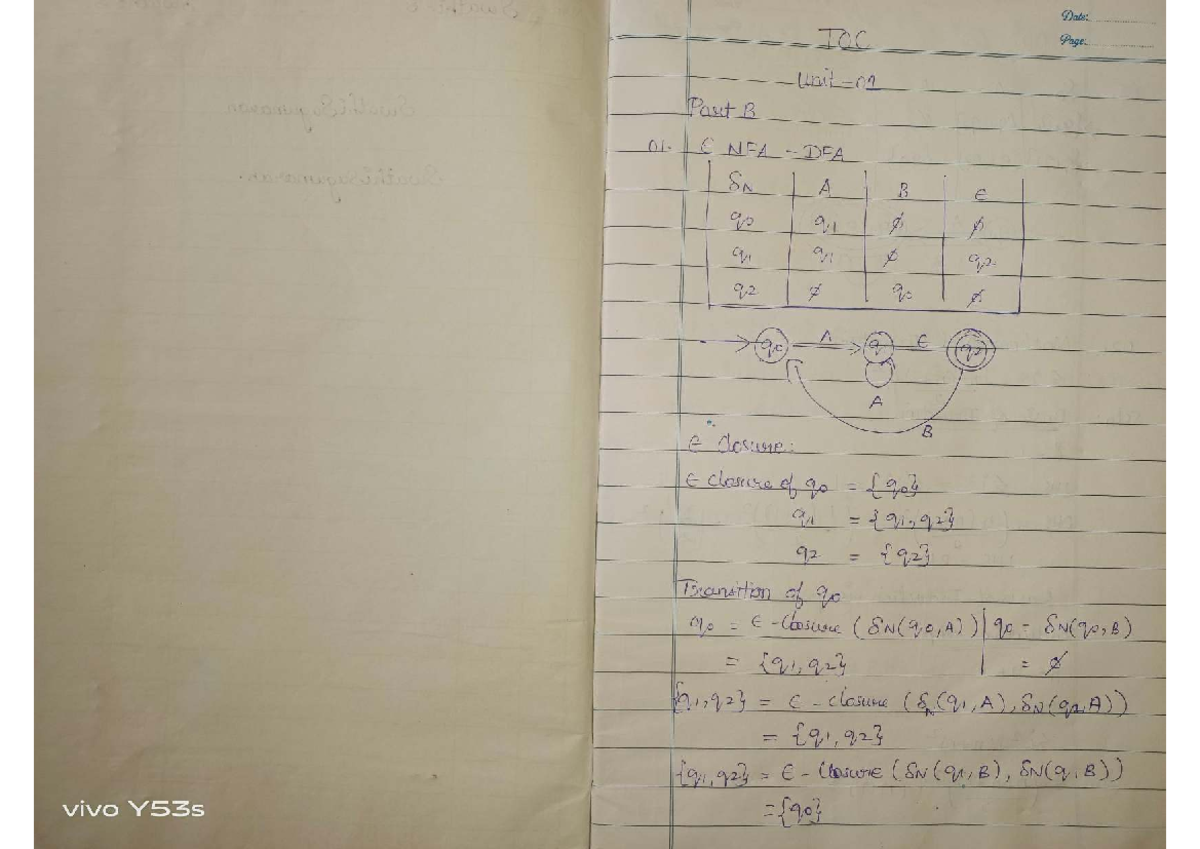 Date:
Page:
TOC
Unit = 01
Part B
01. ϵ NFA - DFA
δN A B ϵ
q0 q1 ∅ ∅
q1 q1 ∅ q2
q2 ∅ q0 ∅
q0 A q1 ϵ q2
A
B
ϵ closure:
ϵ closure of q0 = {q0}
q1 = {q1, q2}
q2 = {q2}
Transition of q0
q0 = ϵ - closure (δN(q0, A)) | q0 = δN(q0, B)
= {q1, q2} = ∅
{q1, q2} = ϵ - closure (δN(q1, A), δN(q2, A))
= {q1, q2}
{q1, q2} = ϵ - closure (δN(q1, B), δN(q, B))
= {q0}
vivo Y53s